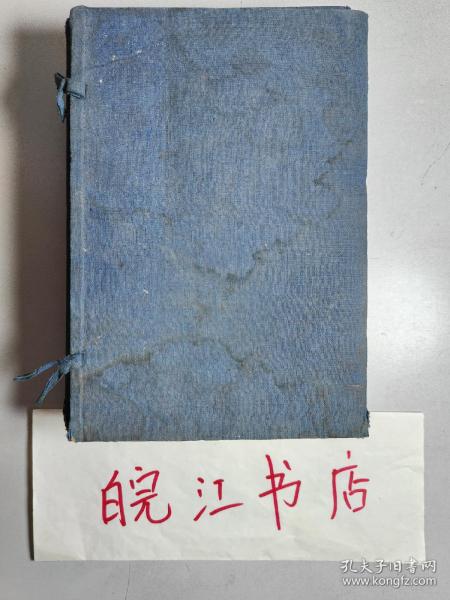 皖江书店
孔夫子旧书网
www.kongfz.com